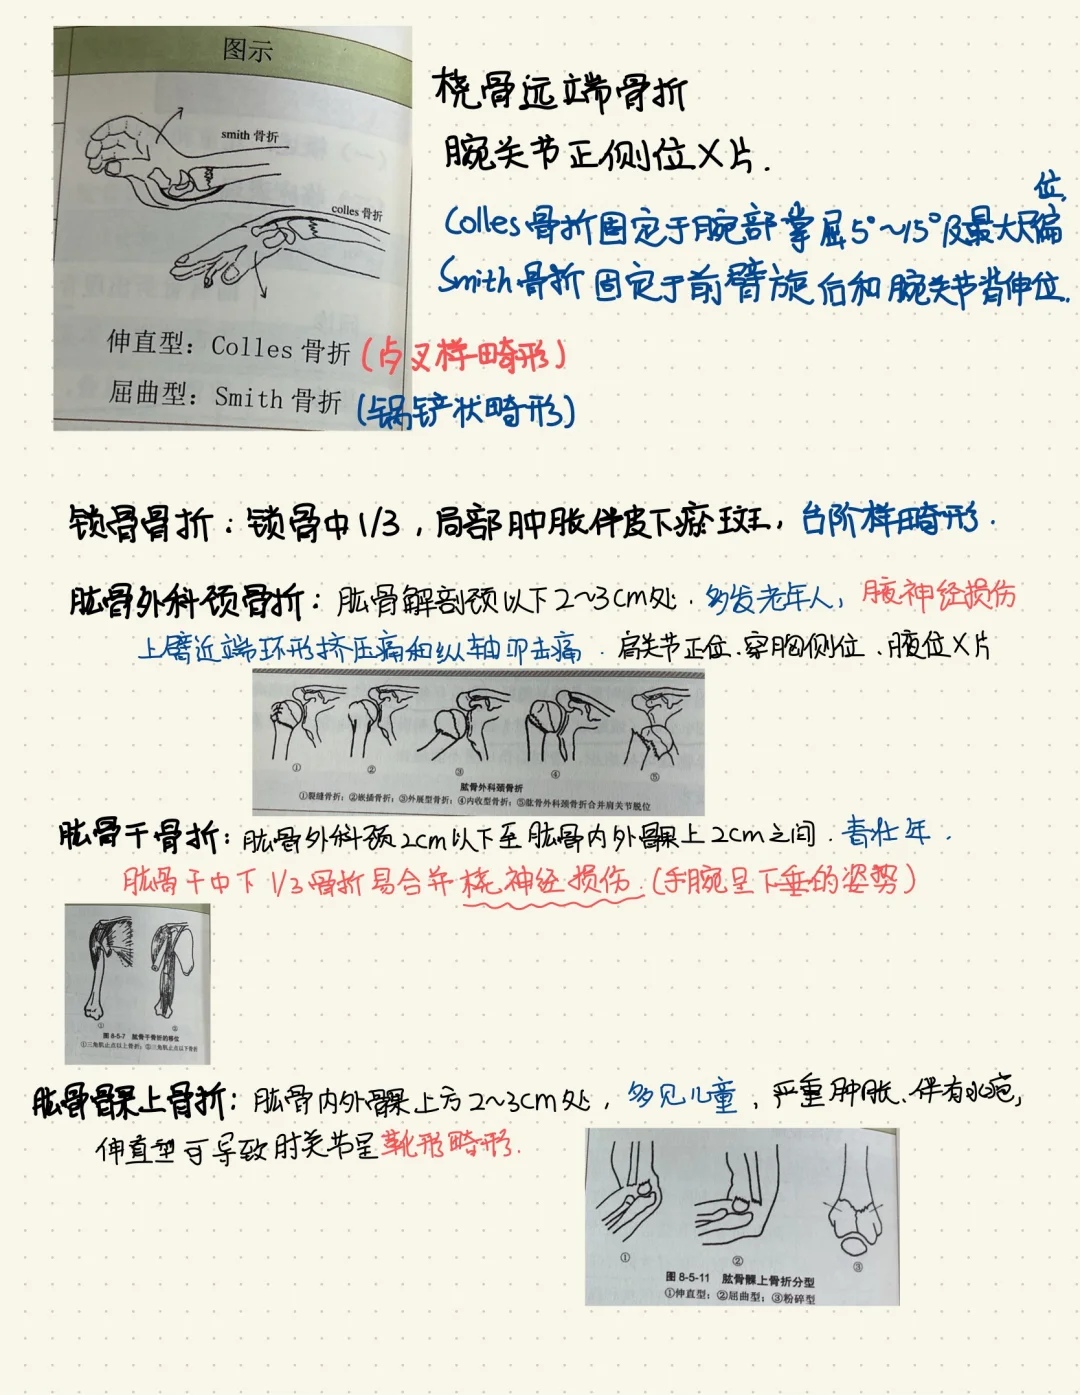 图示
smith 骨折
colles 骨折
伸直型：Colles 骨折（占叉样畸形）
屈曲型：Smith 骨折（锅铲状畸形）
桡骨远端骨折
腕关节正侧位X片.
Colles骨折固定于腕部掌屈5°~15°及最大尺偏位
Smith骨折固定于前臂旋后和腕关节背伸位.
锁骨骨折：锁骨中1/3，局部肿胀伴皮下瘀斑，台阶样畸形.
肱骨外科颈骨折：肱骨解剖颈以下2~3cm处.多发老年人，腋神经损伤
上臂近端环形挤压痛和纵轴叩击痛.肩关节正位、穿胸侧位、腋位X片
① ② ③ ④ ⑤
肱骨外科颈骨折
①裂缝骨折；②嵌插骨折；③外展型骨折；④内收型骨折；⑤肱骨外科颈骨折合并肩关节脱位
肱骨干骨折：肱骨外科颈2cm以下至肱骨内外髁上2cm之间.青壮年.
肱骨干中下1/3骨折易合并桡神经损伤.（手腕呈下垂的姿势）
① ②
图 8-5-7 肱骨干骨折的移位
①三角肌止点以上骨折；②三角肌止点以下骨折
肱骨髁上骨折：肱骨内外髁上方2~3cm处，多见儿童，严重肿胀、伴有水疱，
伸直型可导致肘关节呈靴形畸形.
① ② ③
图 8-5-11 肱骨髁上骨折分型
①伸直型；②屈曲型；③粉碎型